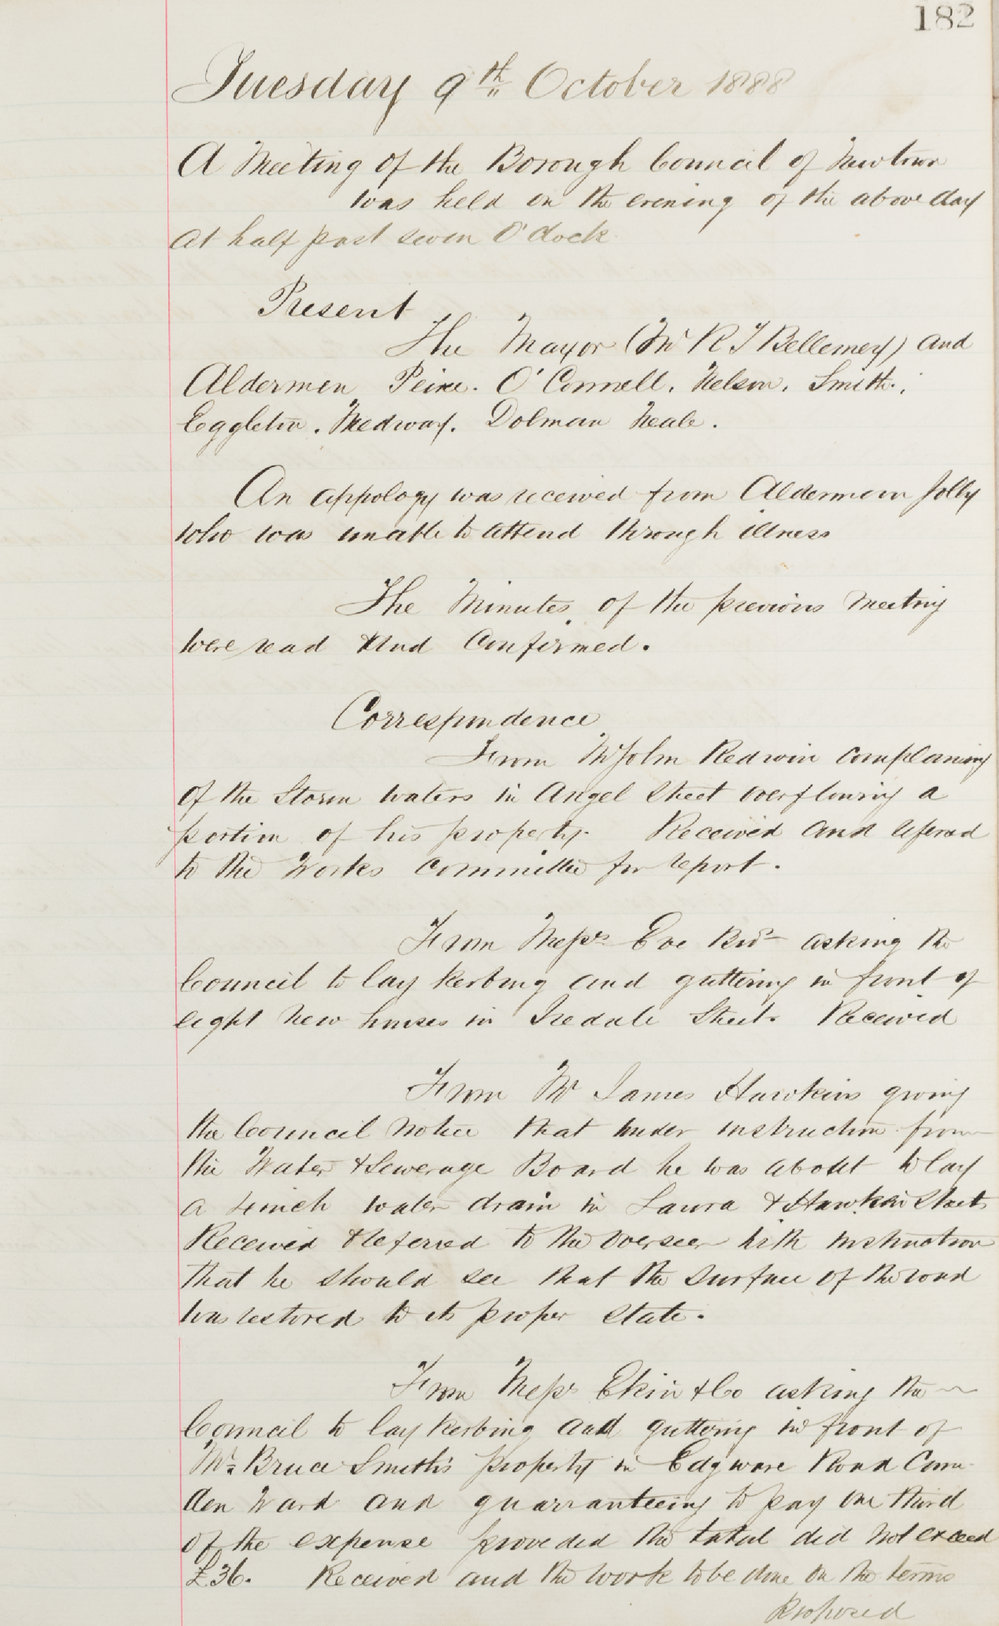 182
Tuesday 9th October 1888
A Meeting of the Borough Council of Newtown
was held on the evening of the above day
at half past seven O'Clock
Present
The Mayor (Mr R T Bellemey) and
Aldermen O'Connell, Nelson, Smith,
Eggleton, Medway, Dolman Neale.
An appology was received from Alderman Jolly
who was unable to attend through illness
The Minutes of the previous Meeting
were read And Confirmed.
Correspondence
From Mr John Redwin complaining
of the Storm waters in Angel Street overflowing a
portion of his property. Received and refered
to the Works Committee for report.
From Messrs Eve Bros asking the
Council to lay kerbing and guttering in front of
eight new houses in Iredale Street. Received
From Mr James Hawkins giving
the Council notice that under instruction from
the Water & Sewerage Board he was about to lay
a 4 inch water drain in Laura & Hawken Streets
Received & referred to the Overseer with instruction
that he should see that the surface of the road
was restored to its proper state.
From Messrs Ekin & Co asking the
Council to lay kerbing and guttering in front of
Mr Bruce Smith's property in Edgware Road Cam
den Ward and guarranteeing to pay one third
of the expense proveded the total did not exceed
£36. Received and the work to be done on the terms
proposed